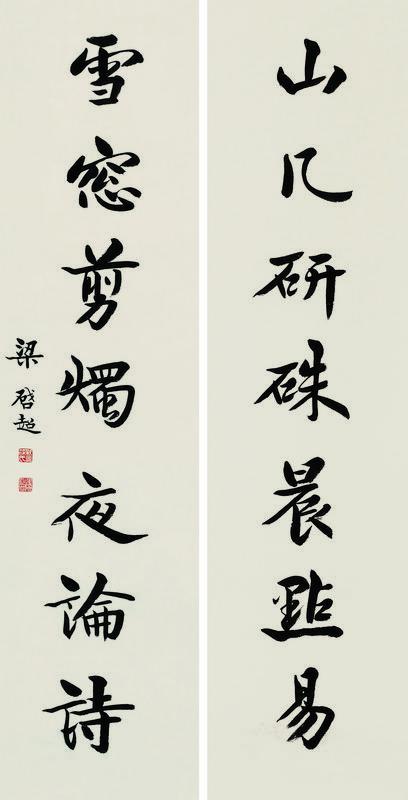 山几研硃晨點易
雪窓剪燭夜論詩
梁啓超